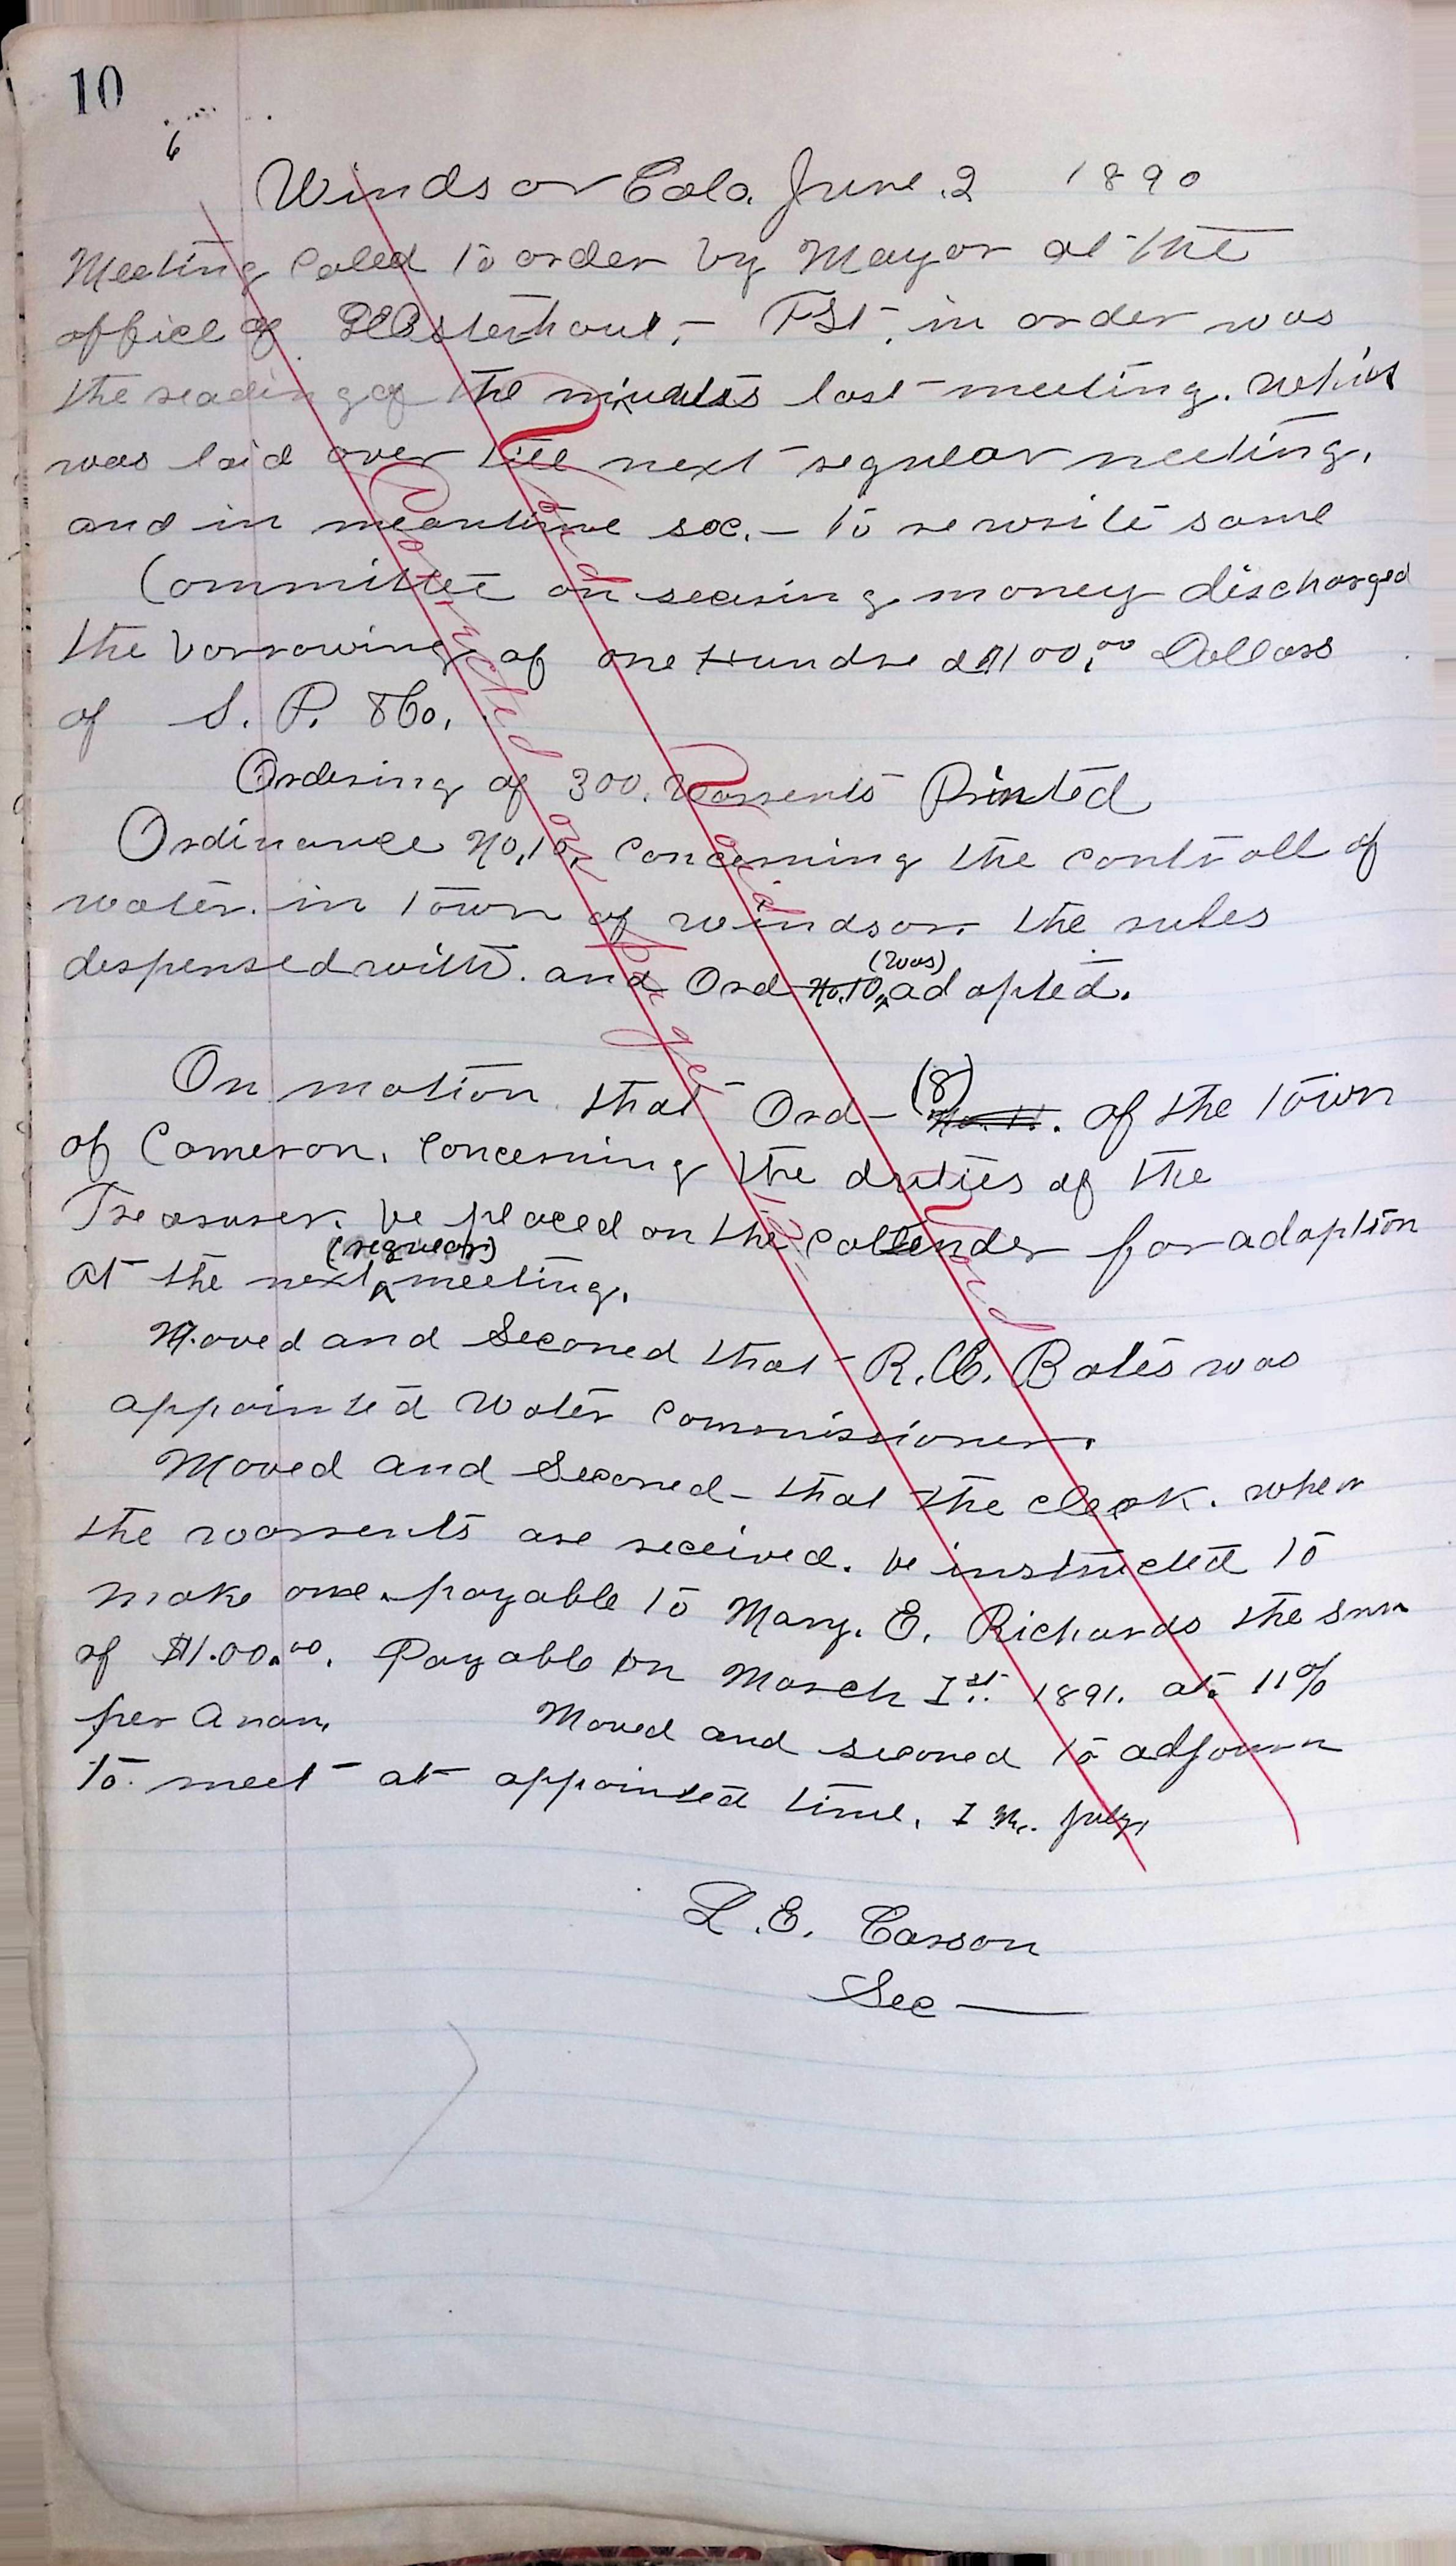 10
6
Windsor Colo. June. 2 1890
Meeting Caled to order by Mayor at the
office of Osterhout,- FSt. in order was
the reading of the minutes last meeting. which
was laid over till next regular meeting.
and in meantime sec.- to rewrite same
Committee on searing money discharged
the borrowing of one Hundred $100.00 Dollars
of S. P. & Co.
Ordering of 300. Warrents Printed
Ordinance No. 10. Concerning the controll of
water. in town of windsor. the rules
despensed with. and Ord No. 10, (was) adopted.
On motion that Ord- (8) No. 11. of the town
of Cameron. Concerning the duties of the
Treasurer. be placed on the Callender for adoption
at the next (reguear) meeting.
Moved and Seconed that R. C. Bates was
appointed Water Commissioner.
Moved and Seconed- that the clerk. when
the warrents are received. be instructed to
make one payable to Mary. E. Richards the sum
of $1.00.00. Payable on March Ist. 1891. at. 11%
per Anam, Moved and seconed to adjourn
to. meet at appointed time, I M. July.
L. E. Carson
Sec
Void
Corrected on page 12
Void
Void